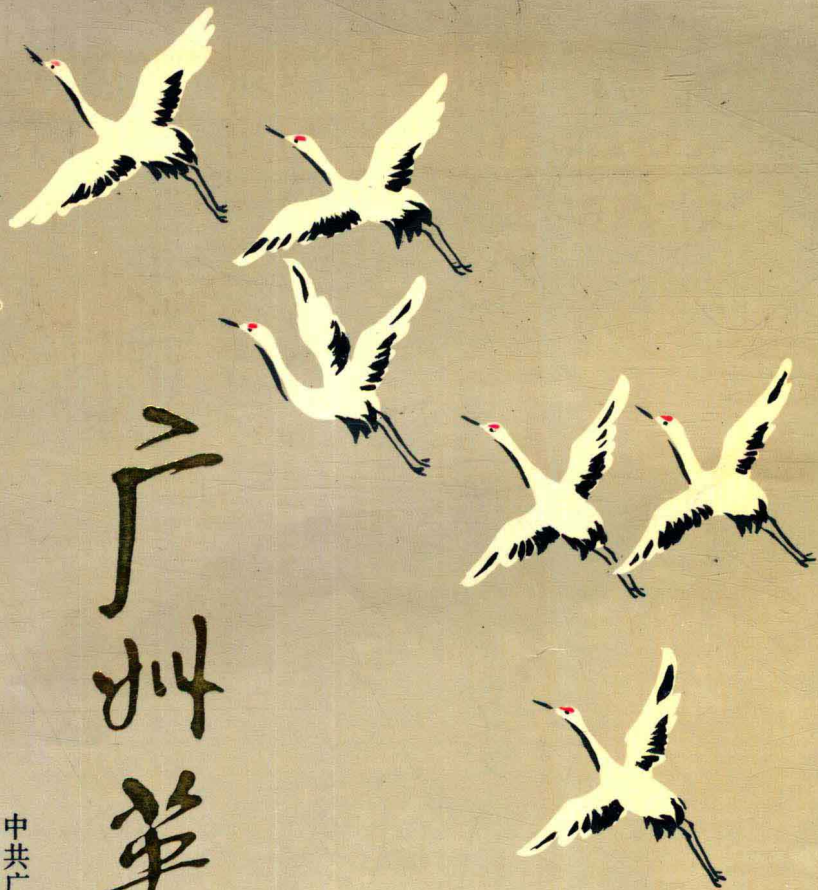 广州革
中共广